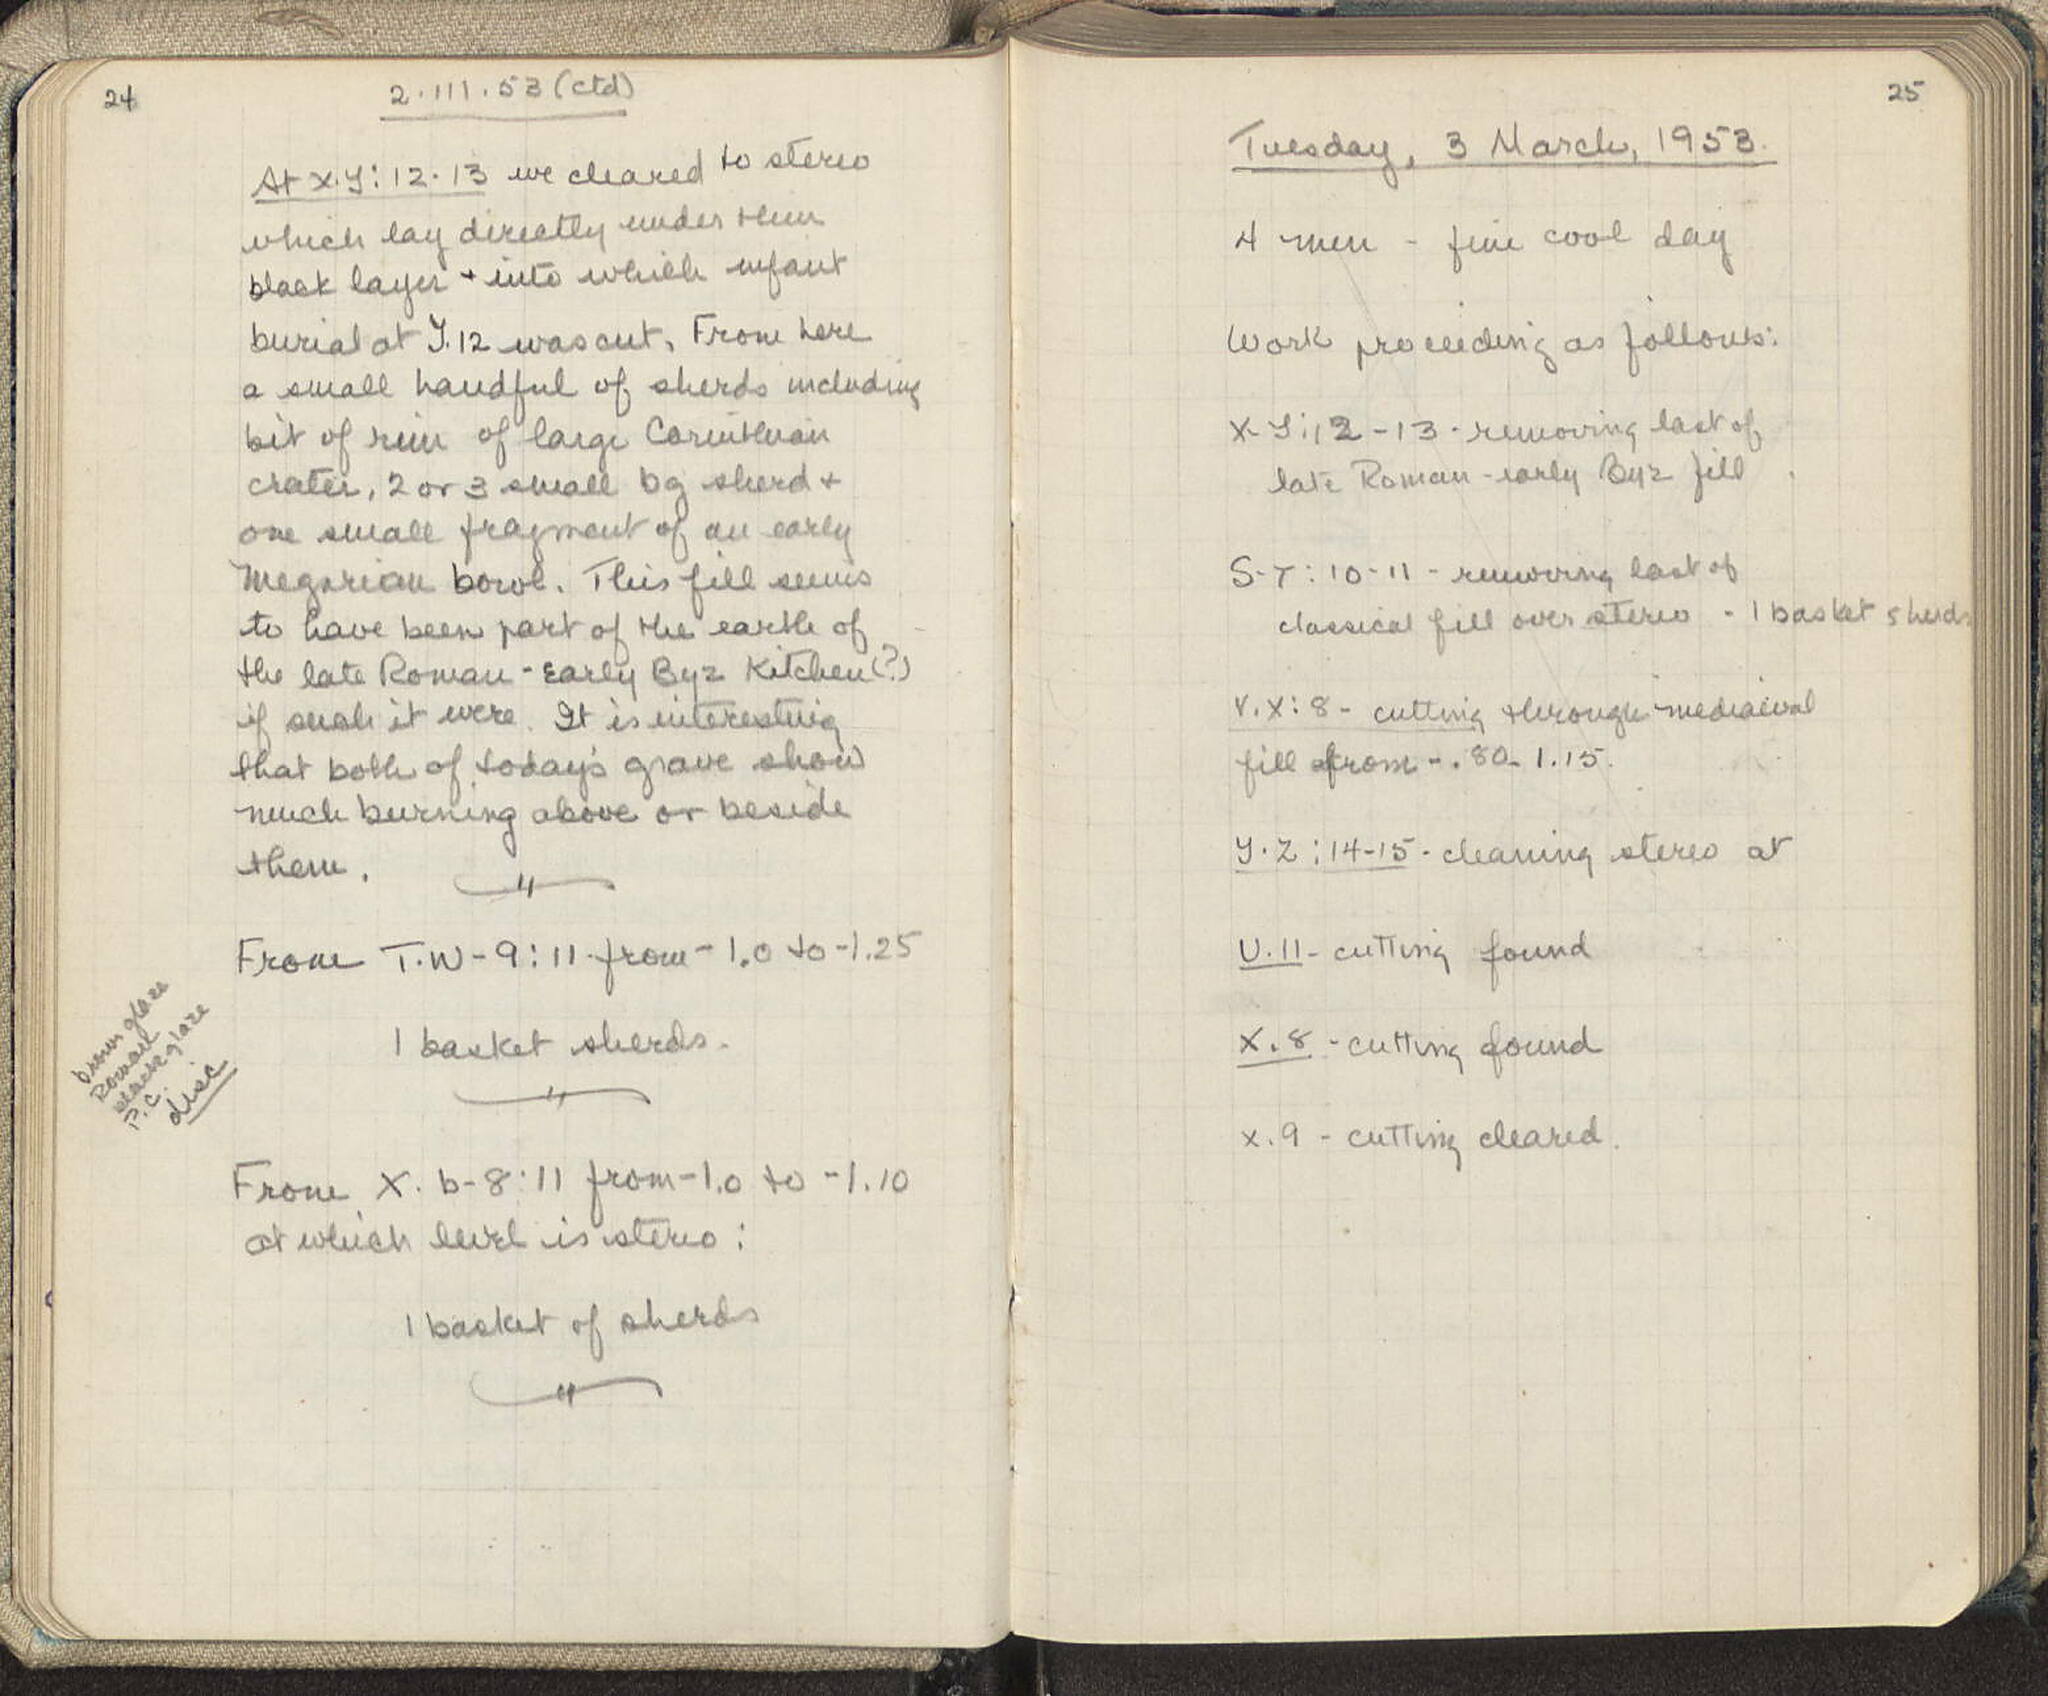 24
2.III.53 (ctd)
At X.Y: 12-13 we cleared to stereo
which lay directly under thin
black layer + into which infant
burial at Y.12 was cut. From here
a small handful of sherds including
bit of rim of large Corinthian
crater, 2 or 3 small bg sherd +
one small fragment of an early
Megarian bowl. This fill seems
to have been part of the earth of
the late Roman - Early Byz Kitchen (?)
if such it were. It is interesting
that both of today's grave show
much burning above or beside
them.
From T.W-9:11 from -1.0 to -1.25
1 basket sherds.
brown glaze
Roman
black glaze
P.C.
disc
From X.b-8:11 from -1.0 to -1.10
at which level is stereo:
1 basket of sherds
25
Tuesday, 3 March, 1953.
4 men - fine cool day
Work proceeding as follows:
X-Y: 12-13 - removing last of
late Roman - early Byz fill
S-T: 10-11 - removing last of
classical fill over stereo - 1 basket sherds
V.X: 8 - cutting through mediaeval
fill from -.80-1.15.
Y.Z: 14-15 - cleaning stereo at
U.11 - cutting found
X.8 - cutting found
X.9 - cutting cleared.